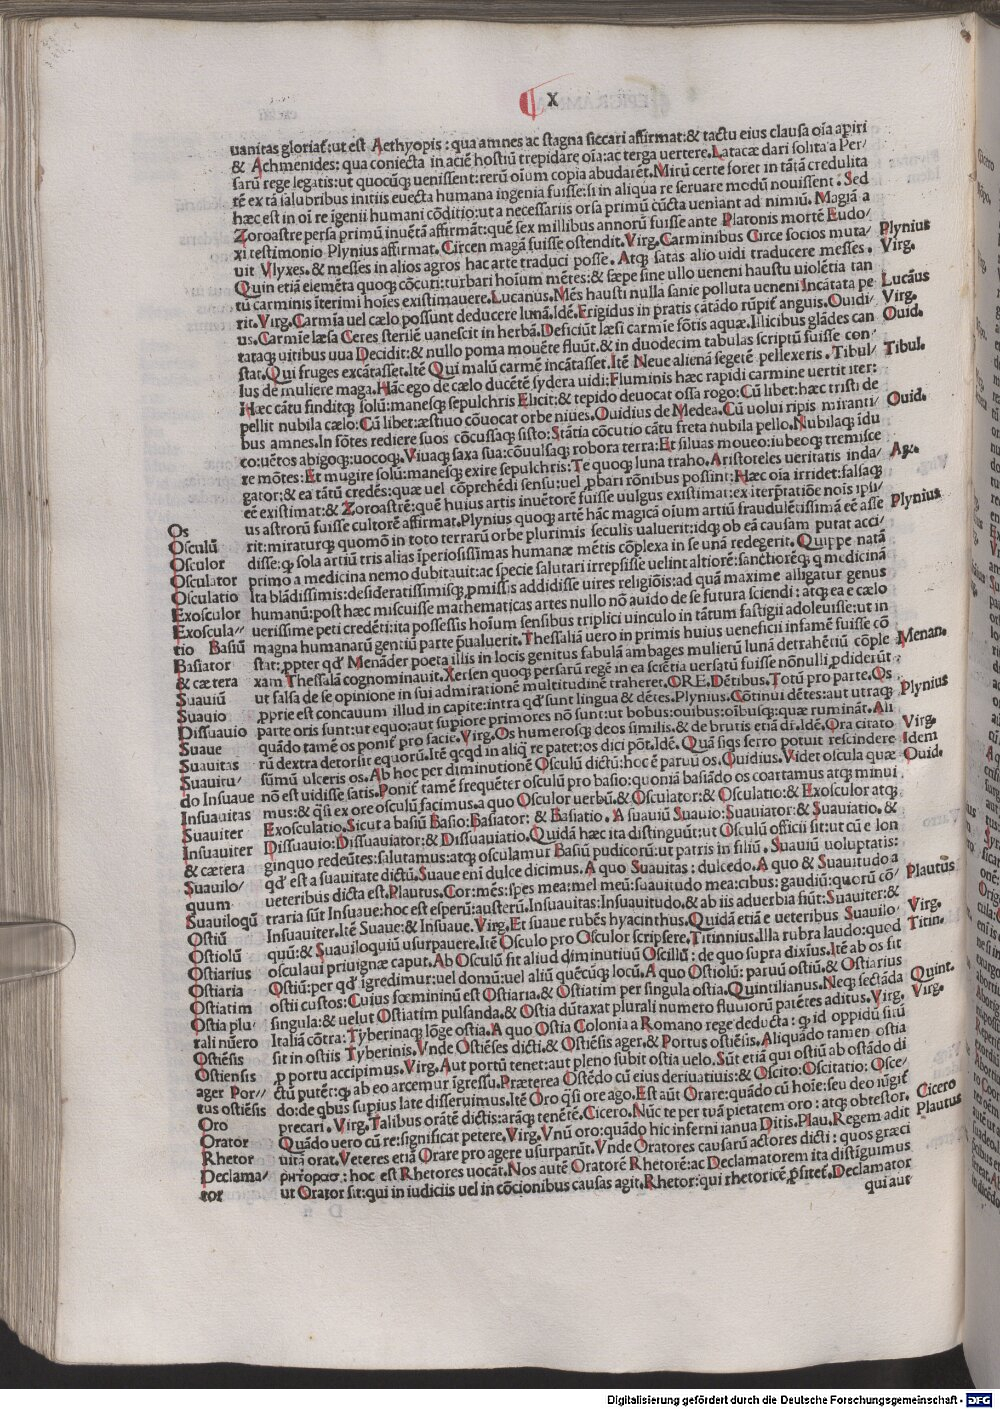 X
uanitas gloriat̃: ut est Aethyopis: qua amnes ac stagna siccari affirmat: & tactu eius clausa oĩa apiri
& Achmenides: qua coniecta in aciẽ hostiũ trepidare oĩa: ac terga uertere. Latacæ dari solita a Per/
sarũ rege legatis: ut quocũq; uenissent: rerũ oium copia abudarẽt. Mirũ certe foret in tãtã credulita
tẽ ex tã salubribus initiis euecta humana ingenia fuisse: si in aliqua re seruare modũ nouissent. Sed
hæc est in oĩ re ĩgenii humani cõditio: ut a necessariis orsa primũ cũcta ueniant ad nimiũ. Magiã a
Zoroastre persa primũ inuẽtã affirmãt: quẽ sex millibus annorũ fuisse ante Platonis mortẽ Eudo/
xi testimonio Plynius affirmat. Circen magã fuisse ostendit. Virg. Carminibus Circe socios muta/
uit Vlyxes. & messes in alios agros hac arte traduci posse. Atq; satas alio uidi traducere messes.
Quin etiã elemẽta quoq; cõcuti: turbari hoĩum mẽtes: & sæpe sine ullo ueneni haustu uiolẽtia tan
tũ carminis ĩterimi hoĩes existimauere. Lucanus. Mẽs hausti nulla sanie polluta ueneni Incãtata pe
rit. Virg. Carmĩa uel cælo possunt deducere lunã. Idẽ. Frigidus in pratis cãtãdo rũpit̃ anguis. Ouidi/
us. Carmĩe læsa Ceres sterilẽ uanescit in herbã. Deficiũt læsi carmĩe fõtis aquæ. Illicibus glãdes can
tataq; uitibus uua Decidit: & nullo poma mouẽte fluũt. & in duodecim tabulas scriptũ fuisse con
stat. Qui fruges excãtasset. Itẽ Qui malũ carmẽ incãtasset. Itẽ Neue alienã segetẽ pellexeris. Tibul/
lus de muliere maga. Hãc ego de cælo ducẽtẽ sydera uidi: Fluminis hæc rapidi carmine uertit iter:
Hæc cãtu finditq; solũ: manesq; sepulchris Elicit: & tepido deuocat ossa rogo: Cũ libet: hæc tristi de
pellit nubila cælo: Cũ libet: æstiuo cõuocat orbe niues. Ouidius de Medea. Cũ uolui ripis miranti/
bus amnes. In fõtes rediere suos cõcussaq; sisto: Stãtia cõcutio cãtu freta nubila pello. Nubilaq; ĩdu
co: uẽtos abigoq: uocoq. Viuaq; saxa sua: cõuulsaq; robora terra: Et siluas moueo: iubeoq; tremisce
re mõtes: Et mugire solũ: manesq; exire sepulchris: Te quoq; luna traho. Aristoteles ueritatis inda/
gator: & ea tãtũ credẽs: quæ uel cõprehẽdi sensu: uel pbari rõnibus possint: Hæc oĩa irridet: falsaq;
eẽ existimat: & Zoroastrẽ: quẽ huius artis inuẽtorẽ fuisse uulgus existimat: ex iterp̃tatiõe nois ipsi/
us astrorũ fuisse cultorẽ affirmat. Plynius quoq; artẽ hãc magicã oĩum artiũ fraudulẽtissimã eẽ asse
rit: miraturq; quomõ in toto terrarũ orbe plurimis seculis ualuerit: idq; ob eã causam putat acci/
disse: q; sola artiũ tris alias ĩperiosissimas humanæ mẽtis cõplexa in se unã redegerit. Quippe natã
primo a medicina nemo dubitauit: ac specie salutari irrepsisse uelint altiorẽ: sanctiorẽq; q̃ medicinã
Ita blãdissimis: desideratissimisq; pmissis addidisse uires religiõis: ad quã maxime alligatur genus
humanũ: post hæc miscuisse mathematicas artes nullo nõ auido de se futura sciendi: atq; ea e cælo
uerissime peti credẽti: ita possessis hoĩum sensibus triplici uinculo in tãtum fastigii adoleuisse: ut in
magna humanarũ gentiũ parte p̃ualuerit. Thessaliã uero in primis huius ueneficii infamẽ fuisse cõ
stat: ppter qď Menãder poeta illis in locis genitus fabulã ambages mulierũ lunã detrahẽtiũ cõple
xam Thessalã cognominauit. Xersen quoq; persarũ regẽ in ea sciẽtia uersatũ fuisse nõnulli pdiderũt
ut falsa de se opinione in sui admirationẽ multitudinẽ traheret. ORE. Dẽtibus. Totũ pro parte. Os
pprie est concauum illud in capite: intra qď sunt lingua & dẽtes. Plynius. Cõtinui dẽtes: aut utraq;
parte oris sunt: ut equo: aut supiore primores nõ sunt: ut bobus: ouibus: oĩbusq; quæ ruminãt. Ali
quãdo tamẽ os ponit̃ pro facie. Virg. Os humerosq; deos similis. & de brutis etiã dr̃. Idẽ. Ora citato
rũ dextra detorsit equorũ. Itẽ qcqd in aliq̃ re patet: os dici põt. Idẽ. Quã siqs ferro potuit rescindere
sũmũ ulceris os. Ab hoc per diminutionẽ Osculũ dictũ: hoc ẽ paruũ os. Ouidius. Videt oscula quæ
nõ est uidisse satis. Ponit̃ tamẽ frequẽter osculũ pro basio: quoniã basiãdo os coartamus atq; minui
mus: & q̃si ex ore osculũ facimus. a quo Osculor uerbũ. & Osculator: & Osculatio: & Exosculor atq;
Exosculatio. Sicut a basiũ Basio: Basiator: & Basiatio. A suauiũ Suauio: Suauiator: & Suauiatio. &
Dissuauio: Dissuauiator: & Dissuauiatio. Quidã hæc ita distinguũt: ut Osculũ officii sit: ut cũ e lon
ginquo redeũtes: salutamus: atq; osculamur Basiũ pudicorũ: ut patris in filiũ. Suauiũ uoluptatis:
qď est a suauitate dictũ. Suaue enĩ dulce dicimus. A quo Suauitas: dulcedo. A quo & Suauitudo a
ueteribus dicta est. Plautus. Cor: mẽs: spes mea: mel meũ: suauitudo mea: cibus: gaudiũ: quorũ cõ/
traria sũt Insuaue: hoc est esperũ: austerũ. Insuauitas: Insuauitudo. & ab iis aduerbia fiũt: Suauiter: &
Insuauiter. Itẽ Suaue: & Insuaue. Virg. Et suaue rubẽs hyacinthus. Quidã etiã e ueteribus Suauilo/
quũ: & Suauiloquiũ usurpauere. Itẽ Osculo pro Osculor scripsere. Titinnius. Illa rubra laudo: quod
osculaui priuignæ caput. Ab Osculũ fit aliud diminutiuũ Oscillũ: de quo supra dixĩus. Itẽ ab os fit
Ostiũ: per qď ĩgredimur: uel domũ: uel aliũ quẽcũq; locũ. A quo Ostiolũ: paruũ ostiũ. & Ostiarius
ostii custos: Cuius fœmininũ est Ostiaria. & Ostiatim per singula ostia. Quintilianus. Neq; sectãda
singula: & uelut Ostiatim pulsanda. & Ostia dũtaxat plurali numero fluuiorũ patẽtes aditus. Virg.
Italiã cõtra: Tyberinaq; lõge ostia. A quo Ostia Colonia a Romano rege deducta: q; id oppidũ sitũ
sit in ostiis Tyberinis. Vnde Ostiẽses dicti. & Ostiẽsis ager. & Portus ostiẽsis. Aliquãdo tamen ostia
p portu accipimus. Virg. Aut portũ tenet: aut pleno subit ostia uelo. Sũt etiã qui ostiũ ab ostãdo di
ctũ putẽt: q; ab eo arcemur ĩgressu. Præterea Ostẽdo cũ eius deriuatiuis: & Oscito: Oscitatio: Osce/
do: de qbus supius late disseruimus. Itẽ Oro q̃si ore ago. Est aũt Orare: quãdo cũ hoĩe: seu deo iũgit̃
precari. Virg. Talibus orãtẽ dictis: arãq; tenẽtẽ. Cicero. Nũc te per tuã pietatem oro: atq; obtestor.
Quãdo uero cũ re: significat petere. Virg. Vnũ oro: quãdo hic inferni ianua Ditis. Plau. Regem adit
uitã orat. Veteres etiã Orare pro agere usurparũt. Vnde Oratores causarũ actores dicti: quos græci
ρητορασ: hoc est Rhetores uocãt. Nos autẽ Oratorẽ Rhetorẽ: ac Declamatorem ita distiguimus
ut Orator sit: qui in iudiciis uel in cõcionibus causas agit. Rhetor: qui rhetoricẽ p̃fitet̃. Declamator
qui aut
Os
Osculũ
Osculor
Osculator
Osculatio
Exosculor
Exoscula//
tio Basiũ
Basiator
& cætera
Suauiũ
Suauio
Dissuauio
Suaue
Suauitas
Suauitu/
do Insuaue
Insuauitas
Suauiter
Insuauiter
& cætera
Suauilo/
quum
Suauiloqũ
Ostiũ
Ostiolũ
Ostiarius
Ostiaria
Ostiatim
Ostia plu/
rali nũero
Ostiẽsis
Ostiensis
ager Por//
tus ostiẽsis
Oro
Orator
Rhetor
Declama/
tor
Plynius
Virg.
Lucãus
Virg.
Ouid.
Tibul.
Ouid.
Ar.
Plynius
Menan.
Plynius
Virg.
Idem
Ouid.
Plautus
Virg.
Titin.
Quint.
Virg.
Cicero
Plautus
Digitalisierung gefördert durch die Deutsche Forschungsgemeinschaft - DFG